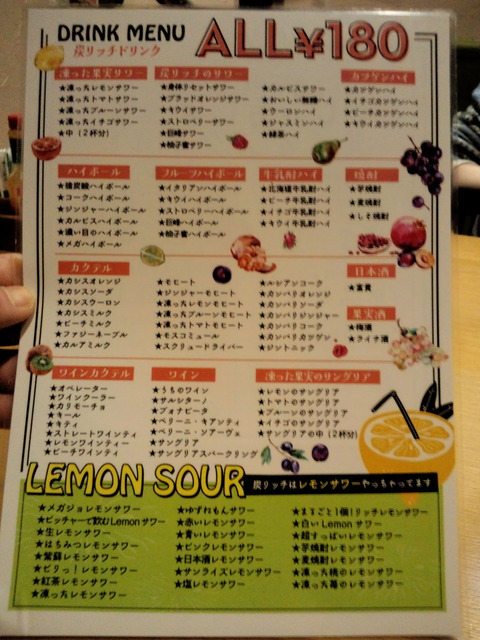 DRINK MENU
炭リッチドリンク
ALL¥180
凍った果実サワー
★凍ったレモンサワー
★凍ったトマトサワー
★凍ったプルーンサワー
★凍ったイチゴサワー
★中（2杯分）
炭リッチのサワー
★身体リセットサワー
★ブラッドオレンジサワー
★キウイサワー
★ストロベリーサワー
★巨峰サワー
★柚子蜜サワー
★カルピスサワー
★おいしい無糖ハイ
★ウーロンハイ
★ジャスミンハイ
★緑茶ハイ
カツゲンハイ
★カツゲンハイ
★イチゴカツゲンハイ
★ピーチカツゲンハイ
★キウイカツゲンハイ
ハイボール
★強炭酸ハイボール
★コークハイボール
★ジンジャーハイボール
★カルピスハイボール
★濃い目のハイボール
★メガハイボール
フルーツハイボール
★イタリアンハイボール
★キウイハイボール
★ストロベリーハイボール
★巨峰ハイボール
★柚子蜜ハイボール
牛乳酎ハイ
★北海道牛乳酎ハイ
★ピーチ牛乳酎ハイ
★イチゴ牛乳酎ハイ
★キウイ牛乳酎ハイ
焼酎
★芋焼酎
★麦焼酎
★しそ焼酎
カクテル
★カシスオレンジ
★カシスソーダ
★カシスウーロン
★カシスミルク
★ピーチミルク
★ファジーネーブル
★カルアミルク
★モヒート
★ジンジャーモヒート
★凍ったレモンモヒート
★凍ったプルーンモヒート
★凍ったトマトモヒート
★モスコミュール
★スクリュードライバー
★ルシアンコーク
★カンパリオレンジ
★カンパリソーダ
★カンパリジンジャー
★カンパリコーク
★カンパリカツゲン
★ジントニック
日本酒
★富貴
果実酒
★梅酒
★ライチ酒
ワインカクテル
★オペレーター
★ワインクーラー
★カリモーチョ
★キール
★キティ
★ストレートワインティ
★レモンワインティー
★ピーチワインティ
ワイン
★うちのワイン
★サルシターノ
★プォナピータ
★ペリーニ・キアンティ
★ペリーニ・ソアーヴェ
★サングリア
★サングリアスパークリング
凍った果実のサングリア
★レモンのサングリア
★トマトのサングリア
★プルーンのサングリア
★イチゴのサングリア
★サングリアの中（2杯分）
LEMON SOUR
炭リッチはレモンサワーやっちゃってます
★メガジョレモンサワー
★ピッチャーで飲むLemonサワー
★生レモンサワー
★はちみつレモンサワー
★紫蘇レモンサワー
★ピリっ！レモンサワー
★紅茶レモンサワー
★凍ったレモンサワー
★ゆずれもんサワー
★赤いレモンサワー
★青いレモンサワー
★ピンクレモンサワー
★日本酒レモンサワー
★サンライズレモンサワー
★塩レモンサワー
★まるごと1個！リッチレモンサワー
★白いLemonサワー
★超すっぱいレモンサワー
★芋焼酎レモンサワー
★麦焼酎レモンサワー
★凍った桃のレモンサワー
★凍った苺のレモンサワー